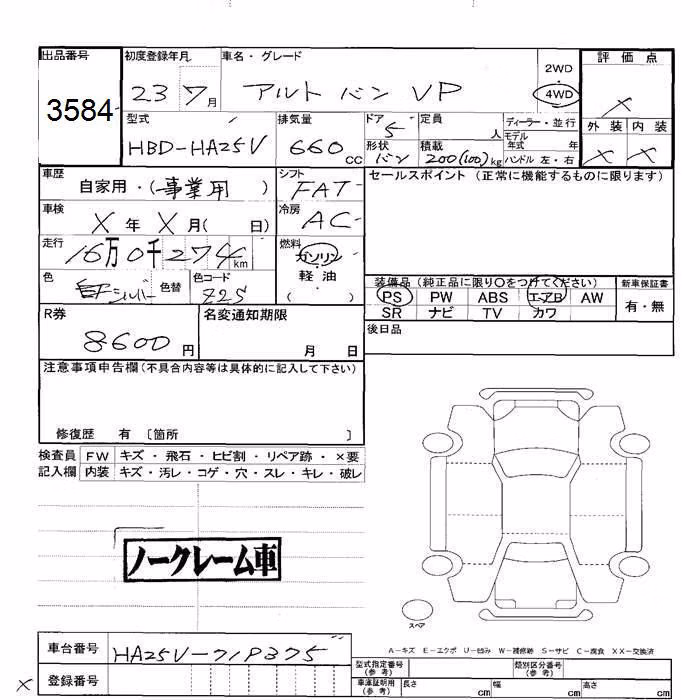 出品番号 初度登録年月 車名・グレード 2WD 評価点
3584 23 7月 アルト バン VP 4WD ×
型式 排気量 ドア 定員 ディーラー・並行 外装 内装
HBD-HA25V 660 cc 5 人 モデル年式 年 × ×
形状 バン 積載 200(100)kg ハンドル 左・右
車歴 自家用・(事業用) シフト FAT セールスポイント (正常に機能するものに限ります)
車検 X年 X月( 日) 冷房 AC
走行 16万0千274km 燃料 ガソリン
軽油
( )
色 シルバー 色替 色コード Z2S
装備品 (純正品に限り○をつけてください) 新車保証書
PS PW ABS エアB AW 有・無
SR ナビ TV カワ
R券 8600円 名変通知期限 月 日 後日品
注意事項申告欄(不具合内容等は具体的に記入して下さい)
修復歴 有 〔箇所 〕
検査員 FW キズ・飛石・ヒビ割・リペア跡・×要
記入欄 内装 キズ・汚レ・コゲ・穴・スレ・キレ・破レ
ノークレーム車
スペア
A-キズ E-エクボ U-凹み W-補修跡 S-サビ C-腐食 XX-交換済
車台番号 HA25V-719375 型式指定番号(参考) 類別区分番号(参考)
× 登録番号 車庫証明用(参考) 長さ cm 幅 cm 高さ cm